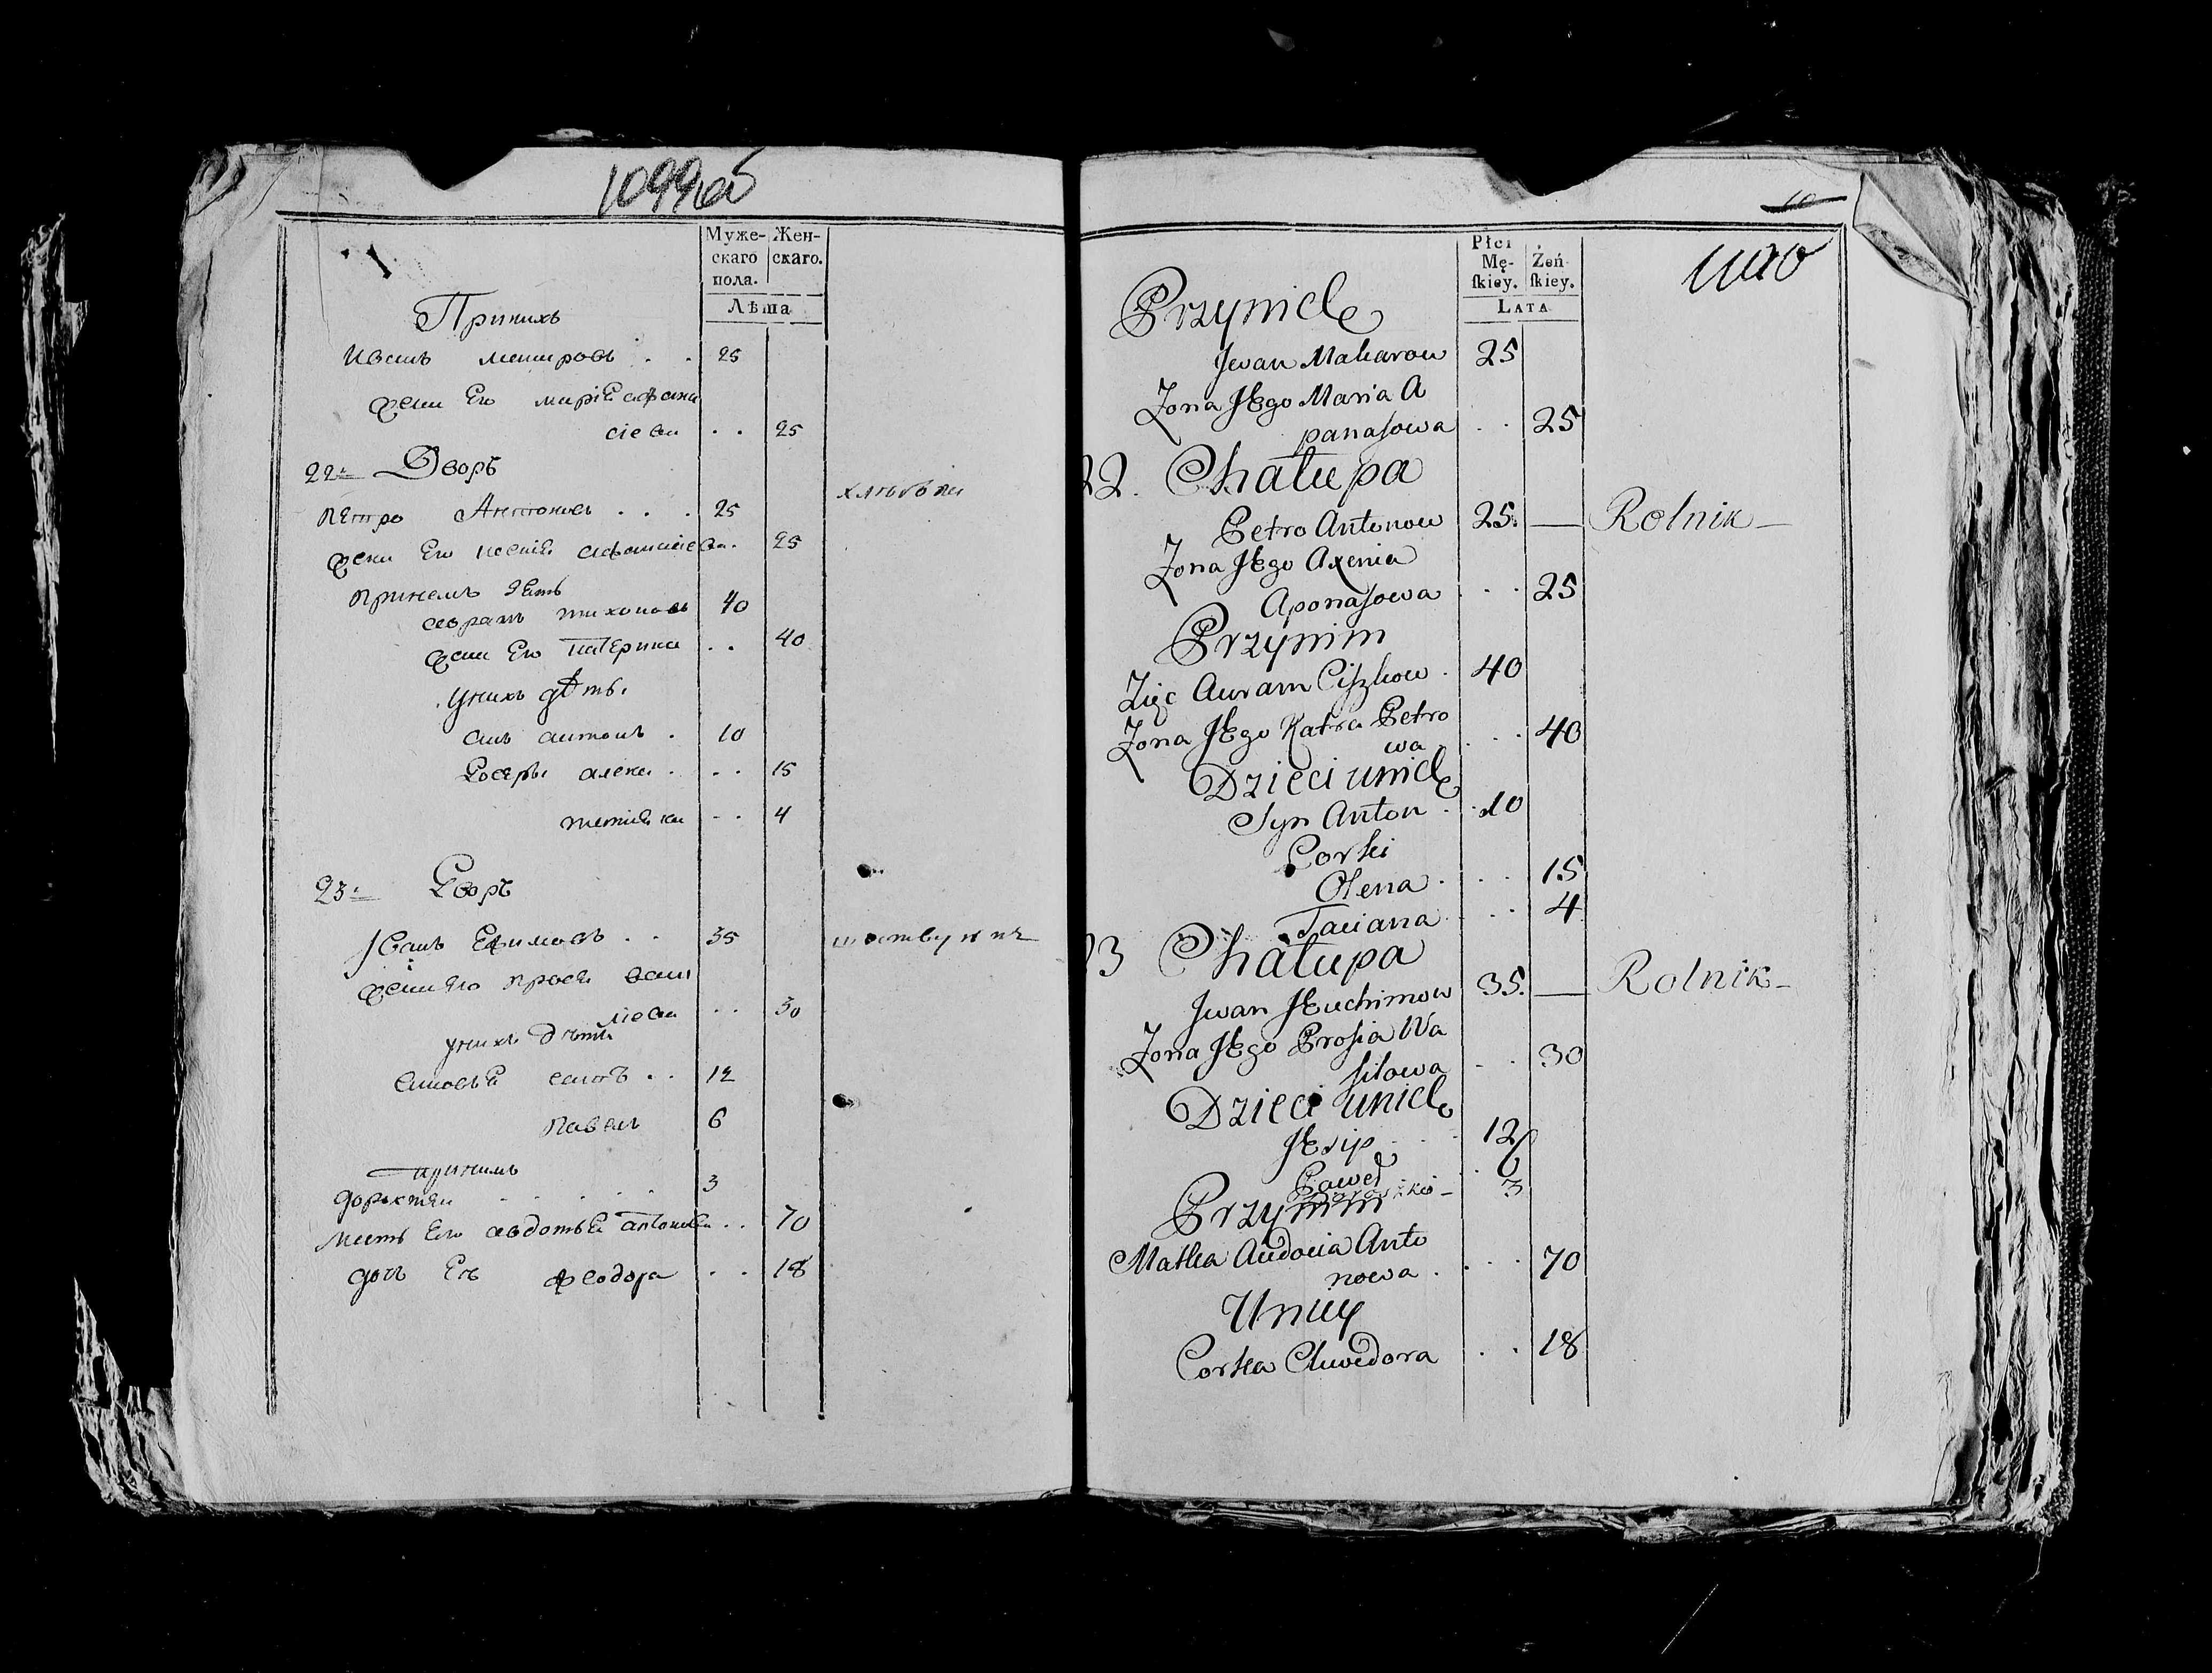 1099об
Муже-
скаго
пола.
Жен-
скаго.
Лѣта
Принихъ
Иванъ макаровъ . . 25
жена Его маріѣ афана
сіева . . 25
22: Дворъ
хлѣбъ
петро Антоновъ . . . 25
жена Его ксенія афанасіева. 25
принемъ зять
аврамъ тихоновъ 40
жена Его катерина . . 40
унихъ дѣти.
сынъ антонъ . 10
доceри алена . . . 15
татіяна . . 4
23: Дворъ
Іванъ Ефимовъ . . 35
жена Его прося васи
ліева . . 30
унихъ дѣти
сыновья есипъ . . 12
павелъ 6
принимъ
3
мать Его авдотья антонова . . 70
дочь Еѣ феодора . . 18
10
1100
Płci
Mę-
ſkiey.
Żeń
ſkiey.
Lata
Przynich
Jwan Makarow 25
Zona JEgo Maria A
panaſowa . . 25
22. Chałupa
Petro Antonow 25. — Rolnik —
Zona JEgo Axenia
Aponaſowa . . . 25
Przynim
Zięc Auram Ciſzkow . 40
Zona JEgo Katra Petro
wa . . . 40
Dzieci unich
Syn Anton . . 10
Corki
Olena . . . 15
Taciana . . 4
23 Chałupa
Jwan JEuchimow 35. — Rolnik —
Zona JEgo Proſia Wa
ſilowa . . 30
Dzieci unich
JEsip . . . 12
Paweł . 6
3
Przynim
Matka Audocia Anto
nowa . . . . 70
Uniey
Corka Chwedora . . 18